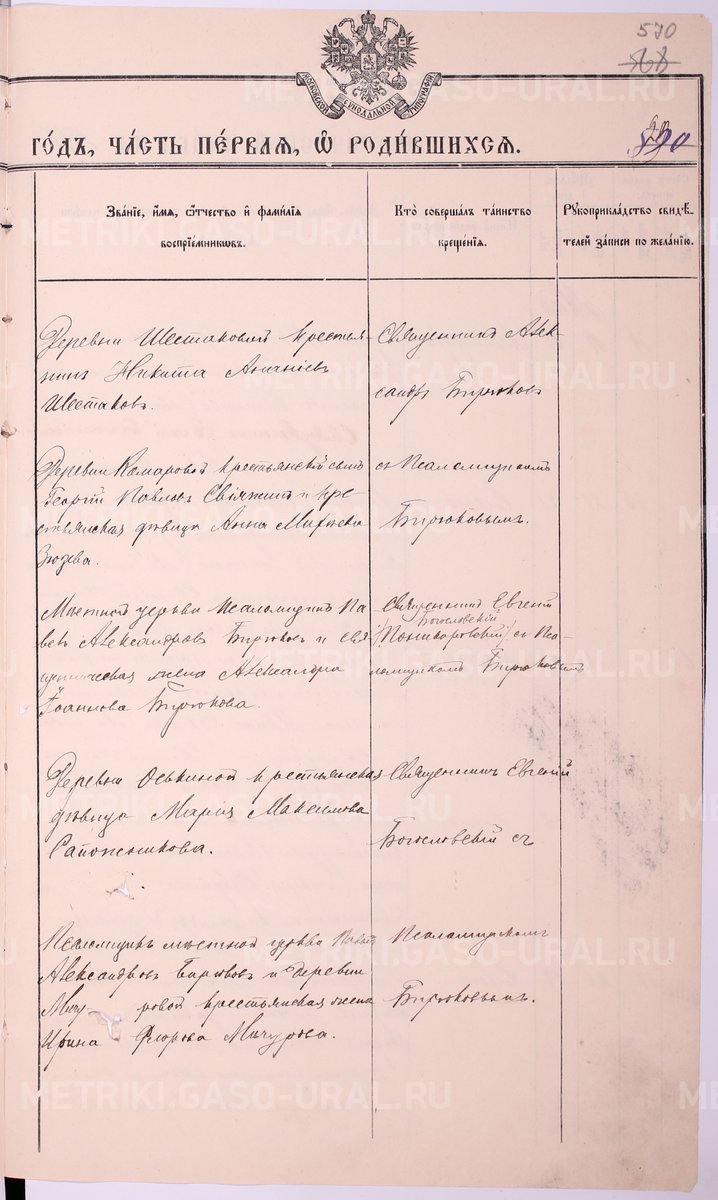 570
МОСКОВСКОЙ СѴНОДАЛЬНОЙ ТИПОГРАФІИ
ГО́ДЪ, ЧА́СТЬ ПЕ́РВАЯ, Ѿ РОДИ́ВШИХСЯ.
Зва́ніе, и҆́мя, ѻ҆́тчество и҆ фами́лія
воспрїе́мникѡвъ.
Кто̀ соверша́лъ та́инство
креще́нія.
Рꙋкоприкла́дство свидѣ́-
телей за́писи по жела́нію.
Деревни Шестаковой крестья-
нинъ Никита Ананіевъ
Шестаковъ.
Священникъ Алек-
сандръ Бирюковъ
Деревни Комаровой крестьянскій сынъ
Георгій Павловъ и кре-
стьянская дѣвица Анна
съ Псаломщикомъ
Бирюковымъ.
Мѣстной церкви Псаломщикъ Па-
велъ Александровъ Бирюковъ и свя-
щенническая жена Александра
Іоаннова Бирюкова.
Священникъ Евгеній
Богословскій
съ Пса-
ломщикомъ Бирюковымъ
Деревни Оськиной крестьянская
дѣвица Марія Максимова
Сапожникова.
Священникъ Евгеній
Богословскій съ
Псаломщикъ мѣстной церкви Павелъ
Александровъ Бирюковъ и деревни
Мичуровой крестьянская жена
Ирина Флорова Мичурова.
Псаломщикомъ
Бирюковымъ.
METRIKI.GASO-URAL.RU